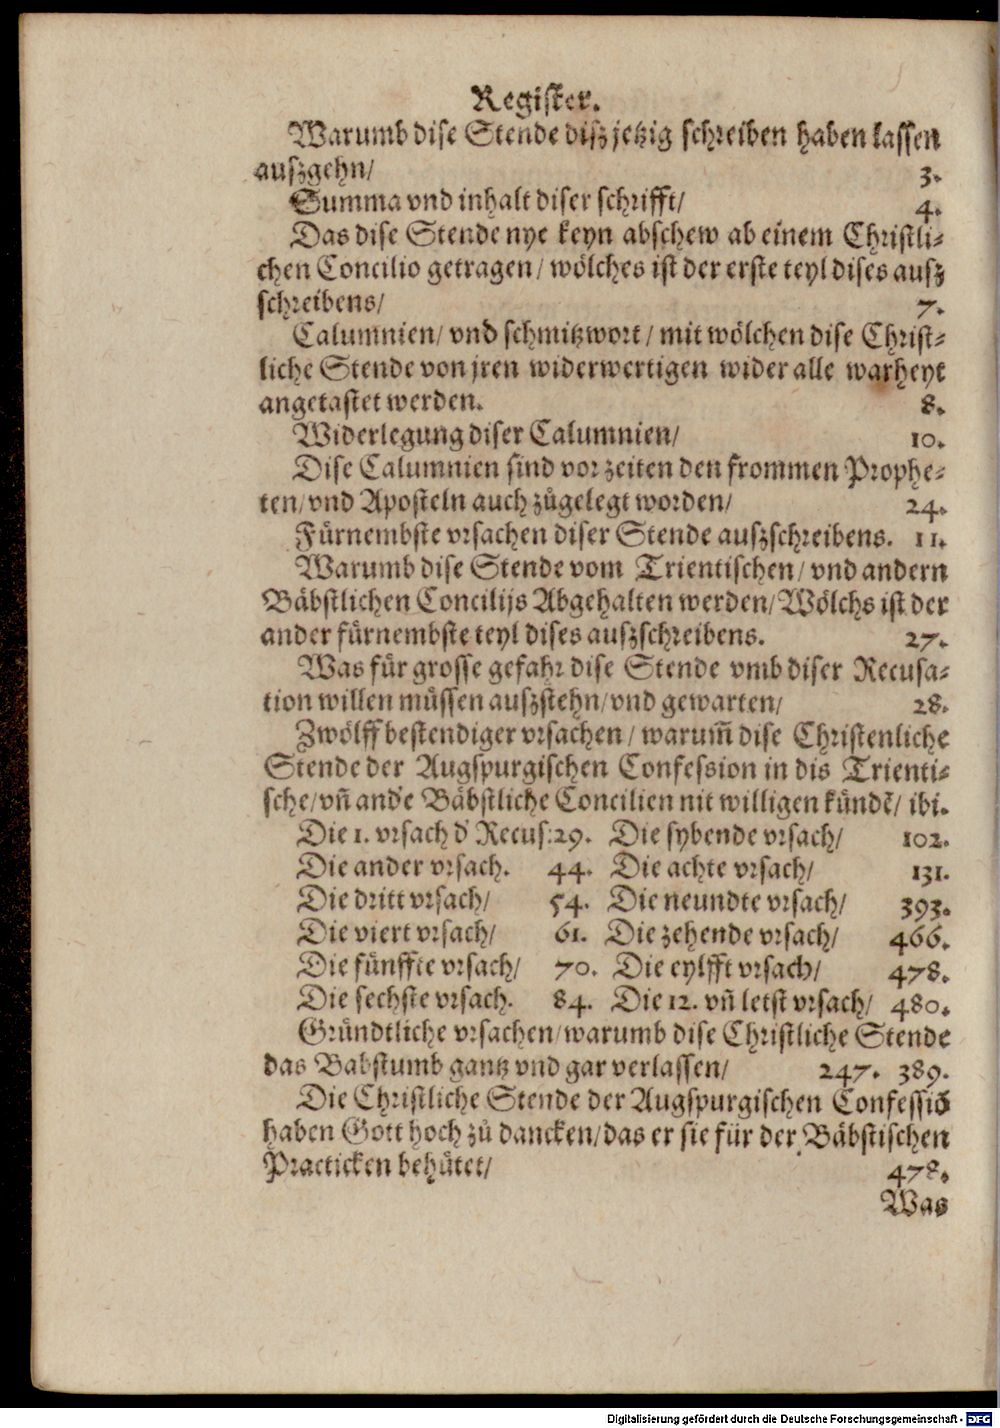 Register.
Warumb dise Stende disz jetzig schreiben haben lassen
auszgehn/ 3.
Summa vnd inhalt diser schrifft/ 4.
Das dise Stende nye keyn abschew ab einem Christli-
chen Concilio getragen/ wölches ist der erste teyl dises ausz
schreibens/ 7.
Calumnien/ vnd schmitzwort/ mit wölchen dise Christ-
liche Stende von jren widerwertigen wider alle warheyt
angetastet werden. 8.
Widerlegung diser Calumnien/ 10.
Dise Calumnien sind vor zeiten den frommen Prophe-
ten/ vnd Aposteln auch zůgelegt worden/ 24.
Fürnembste vrsachen diser Stende auszschreibens. 11.
Warumb dise Stende vom Trientischen/ vnd andern
Bäbstlichen Concilijs Abgehalten werden/ Wölchs ist der
ander fürnembste teyl dises auszschreibens. 27.
Was für grosse gefahr dise Stende vmb diser Recusa-
tion willen müssen auszstehn/ vnd gewarten/ 28.
Zwölff bestendiger vrsachen/ warum̃ dise Christenliche
Stende der Augspurgischen Confession in dis Trienti-
sche/ vñ and'e Bäbstliche Concilien nit willigen kündẽ/ ibi.
Die 1. vrsach d' Recus: 29. Die sybende vrsach/ 102.
Die ander vrsach. 44. Die achte vrsach/ 131.
Die dritt vrsach/ 54. Die neundte vrsach/ 393.
Die viert vrsach/ 61. Die zehende vrsach/ 466.
Die fünffte vrsach/ 70. Die eylfft vrsach/ 478.
Die sechste vrsach. 84. Die 12. vñ letst vrsach/ 480.
Gründtliche vrsachen/ warumb dise Christliche Stende
das Babstumb gantz vnd gar verlassen/ 247. 389.
Die Christliche Stende der Augspurgischen Confessiō
haben Gott hoch zů dancken/ das er sie für der Bäbstischen
Practicken behütet/ 478.
Was
Digitalisierung gefördert durch die Deutsche Forschungsgemeinschaft - DFG